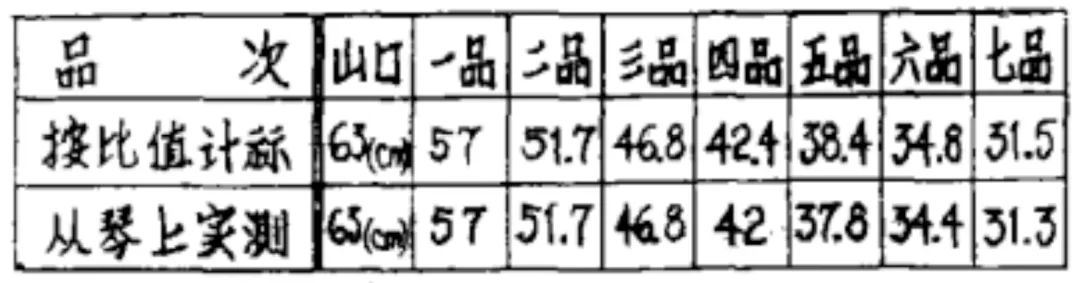 品 次 山口 一品 二品 三品 四品 五品 六品 七品
按比值计标 63(cm) 57 51.7 46.8 42.4 38.4 34.8 31.5
从琴上实测 63(cm) 57 51.7 46.8 42 37.8 34.4 31.3